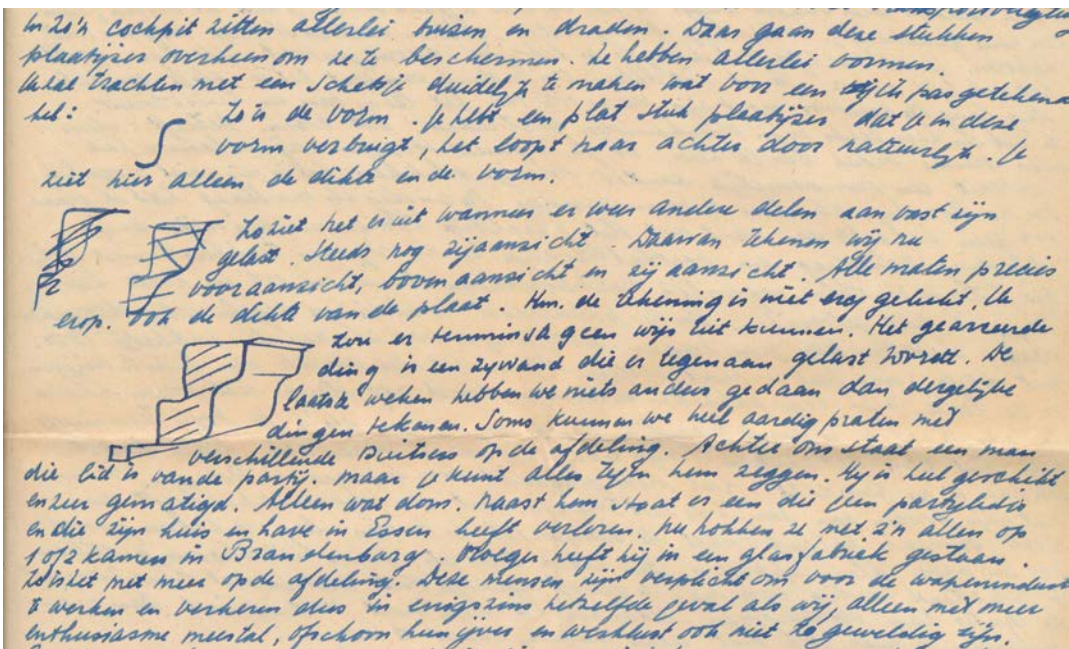 in zo'n cockpit zitten allerlei buizen en draden. Daar gaan deze stukken
plaatijzer overheen om ze te beschermen. Ze hebben allerlei vormen.
Ik zal trachten met een schetsje duidelijk te maken wat voor een pas getekend
heb: Zo is de vorm. Je hebt een plat stuk plaatijzer dat je in deze
vorm verbuigt, het loopt naar achter door natuurlijk. Je
ziet hier alleen de dikte en de vorm.
Zo ziet het eruit wanneer er weer andere delen aan vast zijn
gelast. Steeds nog zijaanzicht. Daarvan tekenen wij nu
vooraanzicht, bovenaanzicht en zijaanzicht. Alle maten precies
erop. Ook de dikte van de plaat. Hm. de tekening is niet erg gelukt. Ik
zou er tenminste geen wijs uit kunnen. Het gearceerde
ding is een zijwand die er tegenaan gelast wordt. De
laatste weken hebben we niets anders gedaan dan dergelijke
dingen tekenen. Soms kunnen we heel aardig praten met
verschillende Duitsers op de afdeling. Achter ons staat een man
die lid is van de partij. maar je kunt alles tegen hem zeggen. Hij is heel geschikt
en zeer gematigd. Alleen wat dom. Naast hem staat er een die geen partijlid is
en die zijn huis en have in Essen heeft verloren. Nu hokken ze met z'n allen op
1 of 2 kamers in Brandenburg. Vroeger heeft hij in een glasfabriek gestaan.
Zo is het met meer op de afdeling. Deze mensen zijn verplicht om voor de wapenindust
te werken en verkeren dus in enigszins hetzelfde geval als wij, alleen met meer
enthusiasme meestal, ofschoon hun ijver en werklust ook niet te geweldig zijn.